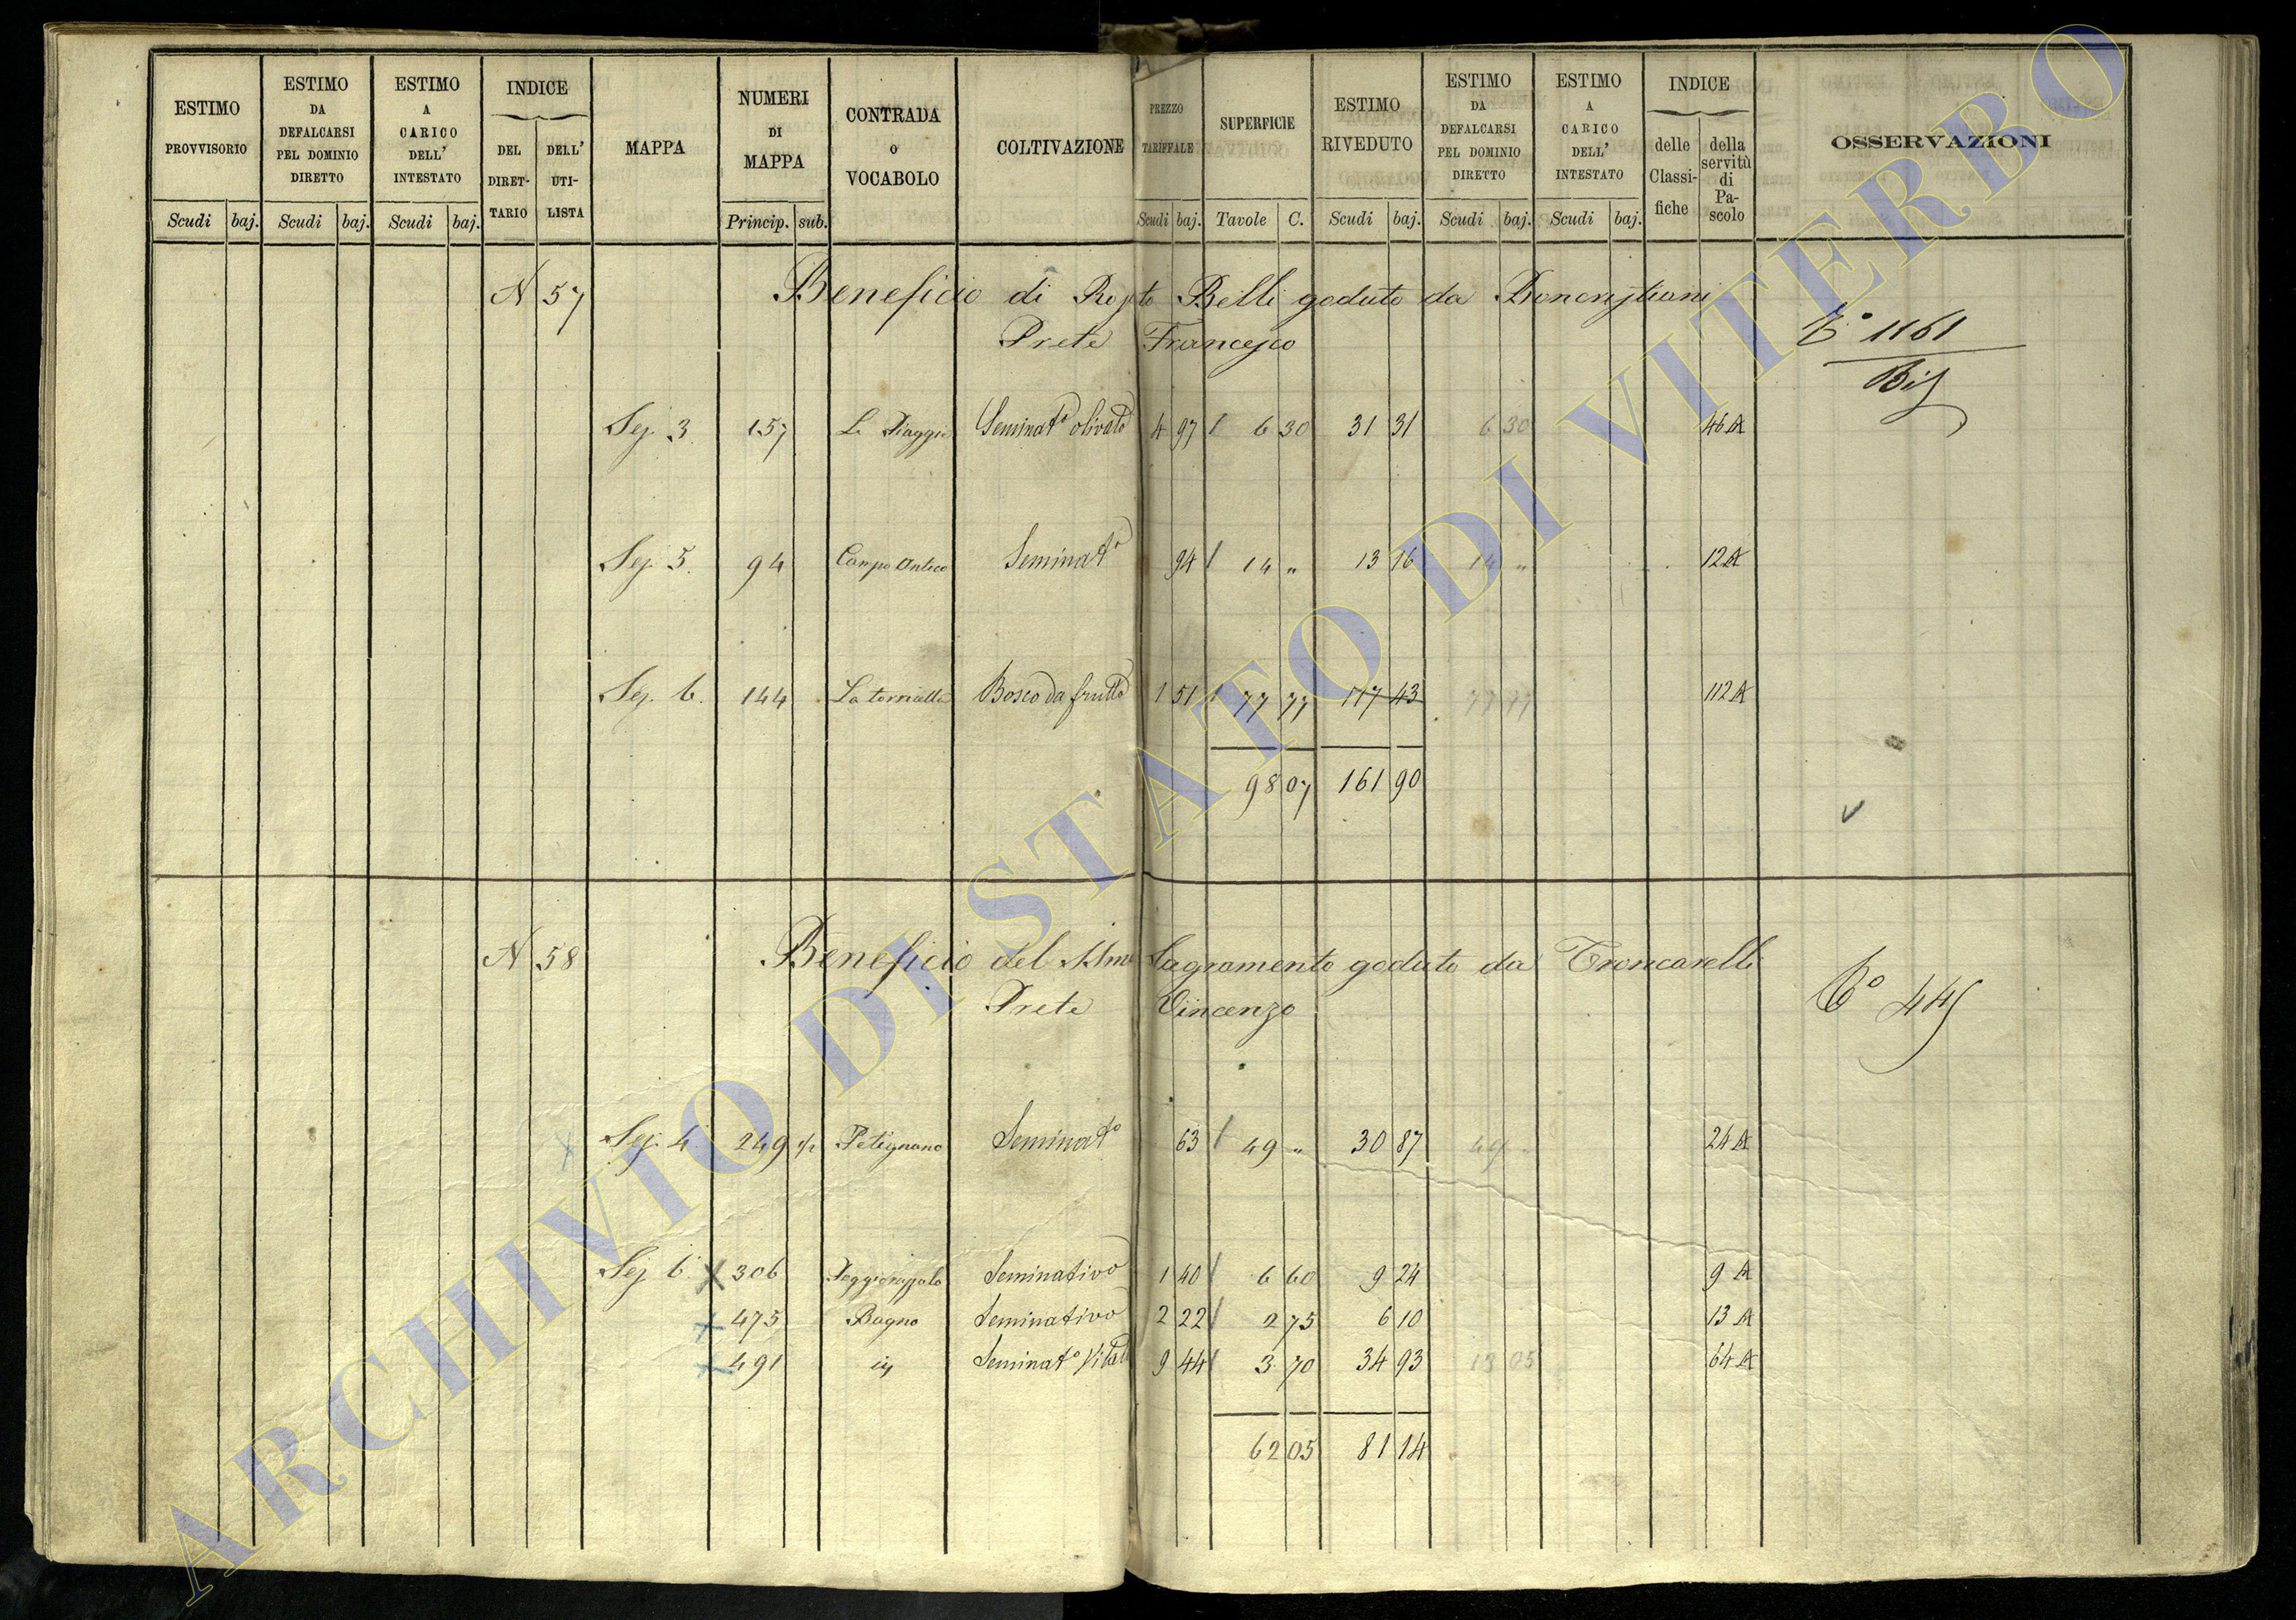 ESTIMO PROVVISORIO
Scudi baj.
ESTIMO DA DEFALCARSI PEL DOMINIO DIRETTO
Scudi baj.
ESTIMO A CARICO DELL' INTESTATO
Scudi baj.
INDICE
DEL DIRET-TARIO
DELL' UTI-LISTA
MAPPA
NUMERI DI MAPPA
Princip. sub.
CONTRADA O VOCABOLO
COLTIVAZIONE
PREZZO TARIFFALE
Scudi baj.
SUPERFICIE
Tavole C.
ESTIMO RIVEDUTO
Scudi baj.
ESTIMO DA DEFALCARSI PEL DOMINIO DIRETTO
Scudi baj.
ESTIMO A CARICO DELL' INTESTATO
Scudi baj.
INDICE
delle Classi-fiche
della servitù di Pa-scolo
OSSERVAZIONI
N 57 Beneficio di Belli goduto da Boncristiani
Prete Francesco
1161
Bis
Sez. 3. 157 Le Piaggie Seminato olivato 4 97 / 6 30 31 31 6 30 46 A
Sez. 5. 94 Campo Antico Seminato 94 / 14 " 13 16 14 " 12 A
Sez. 6. 144 Bosco da frutto 1 51 / 77 77 117 43 77 77 112 A
98 07 161 90
N 58 Beneficio del SSmo Sagramento goduto da Troncarelli
Prete Vincenzo
445
Sez. 4 249 Petignano Seminato 63 / 49 " 30 87 49 " 24 A
Sez. 6. X 306 Seminativo 1 40 / 6 60 9 24 9 A
X 475 Bagno Seminativo 2 22 / 2 75 6 10 13 A
X 491 Seminato Vitato 9 44 / 3 70 34 93 13 05 64 A
62 05 81 14
ARCHIVIO DI STATO DI VITERBO